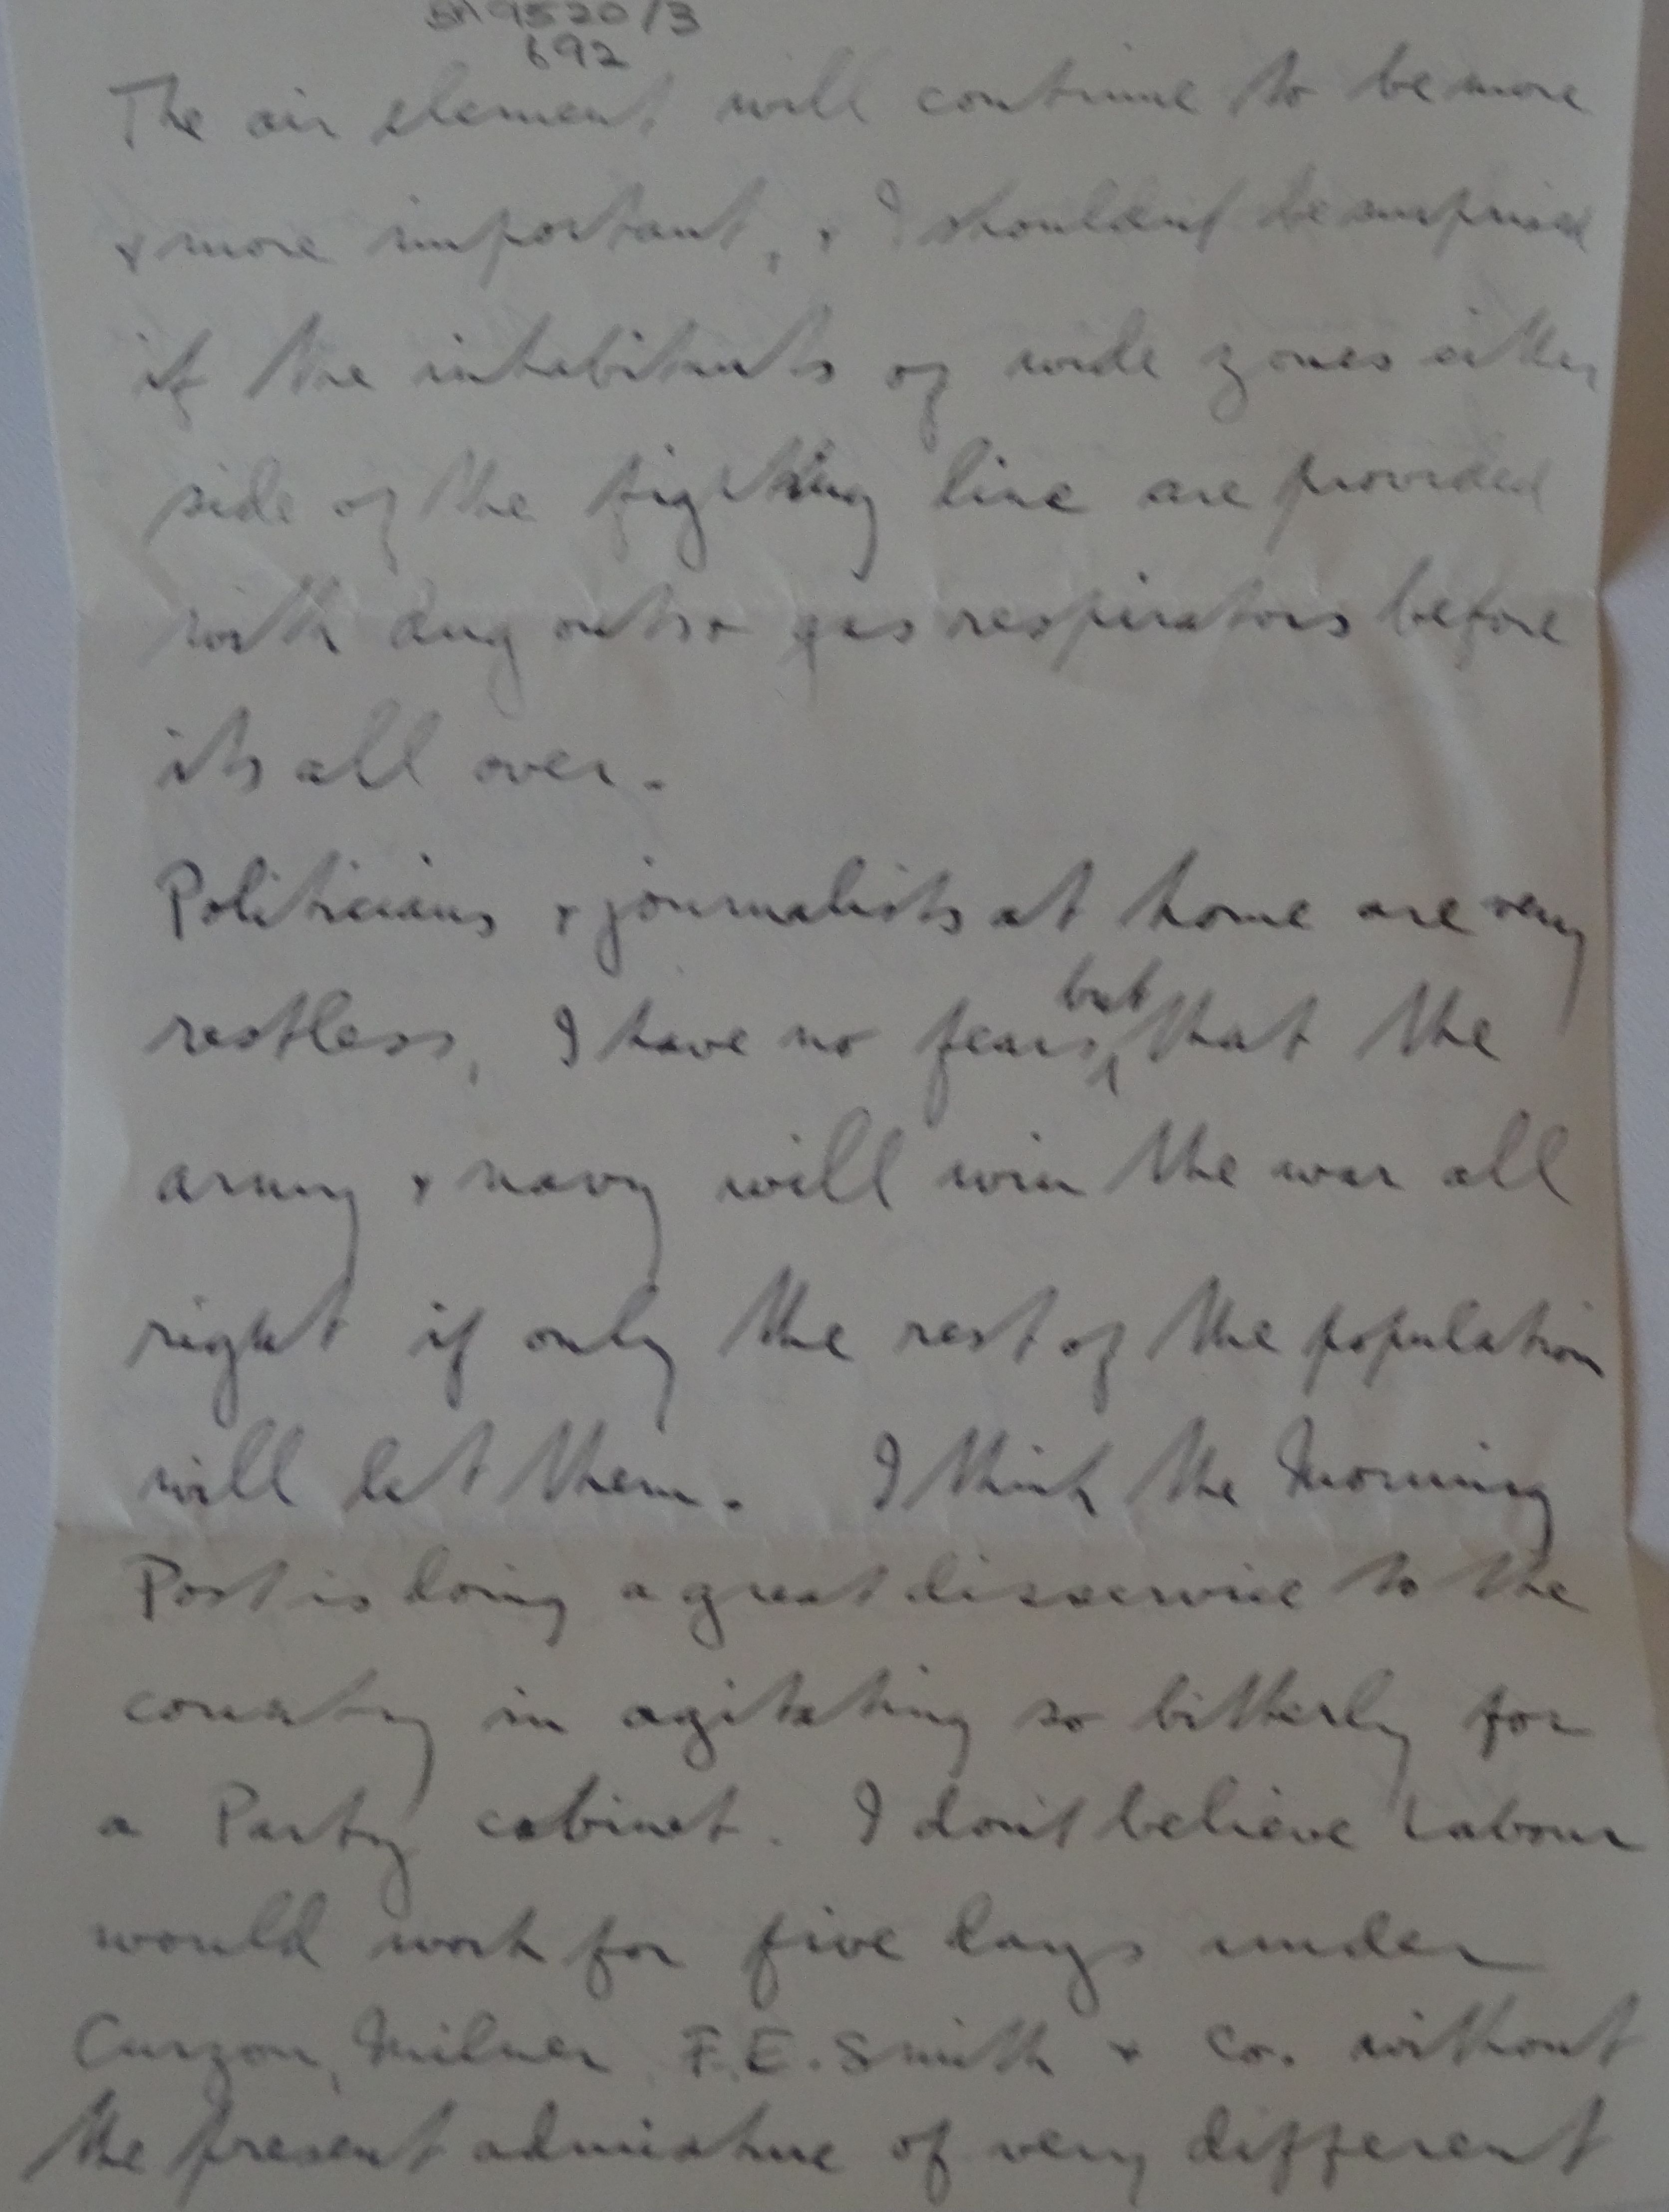 5A9520/3
692
The air element will continue to be more
& more important, & I shouldn't be surprised
if the inhabitants of wide zones either
side of the fighting line are provided
with dug outs & gas respirators before
its all over.
Politicians & journalists at home are very
restless, I have no fears, but that the
army & navy will win the war all
right if only the rest of the population
will let them. I think the Morning
Post is doing a great disservice to the
country in agitating so bitterly for
a Party cabinet. I don't believe Labour
would work for five days under
Curzon, Milner, F.E. Smith & Co. without
the present admixture of very different